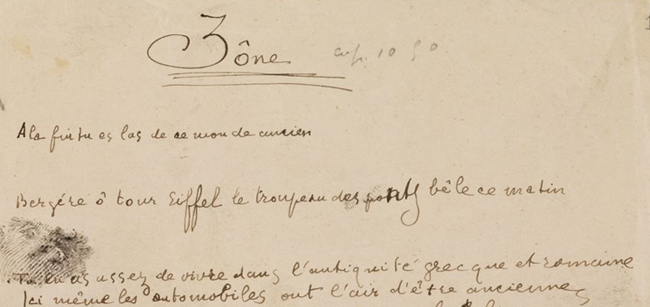 Zône
A la fin tu es las de ce monde ancien
Bergère ô tour Eiffel le troupeau des ponts bêle ce matin
Tu en as assez de vivre dans l'antiquité grecque et romaine
Ici même les automobiles ont l'air d'être anciennes